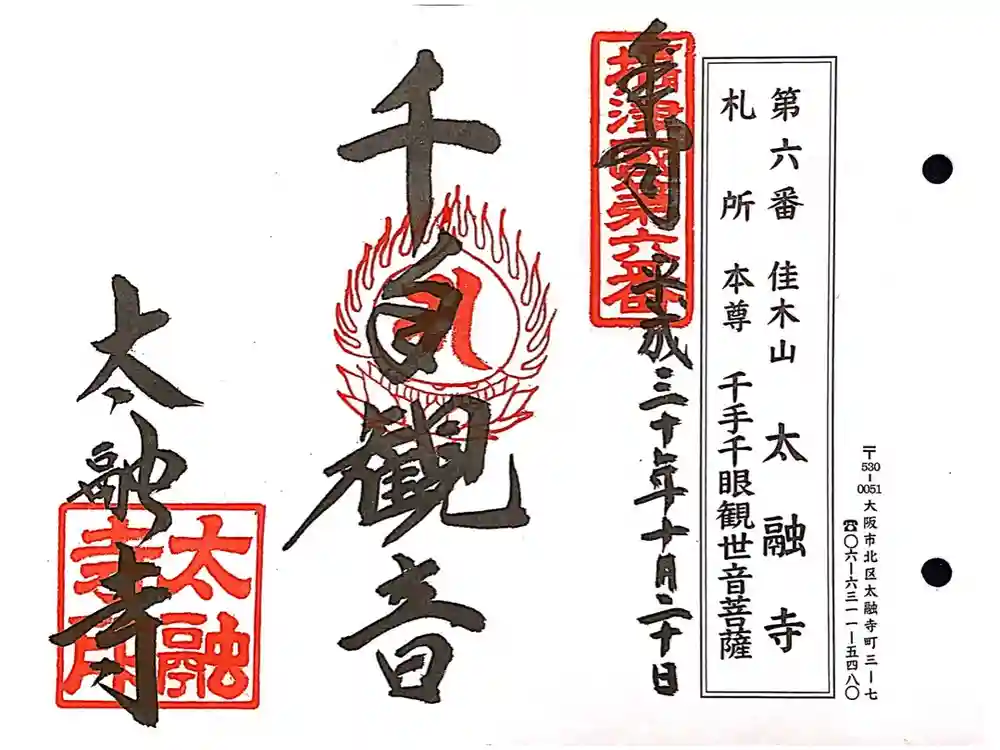 〒530-0051 大阪市北区太融寺町三ー七
☎〇六ー六三一一ー五四八〇
第六番 佳木山 太融寺
札所 本尊 千手千眼観世音菩薩
攝津國第六番
平成三十年十月二十日
千手観音
太融寺
太融
寺印